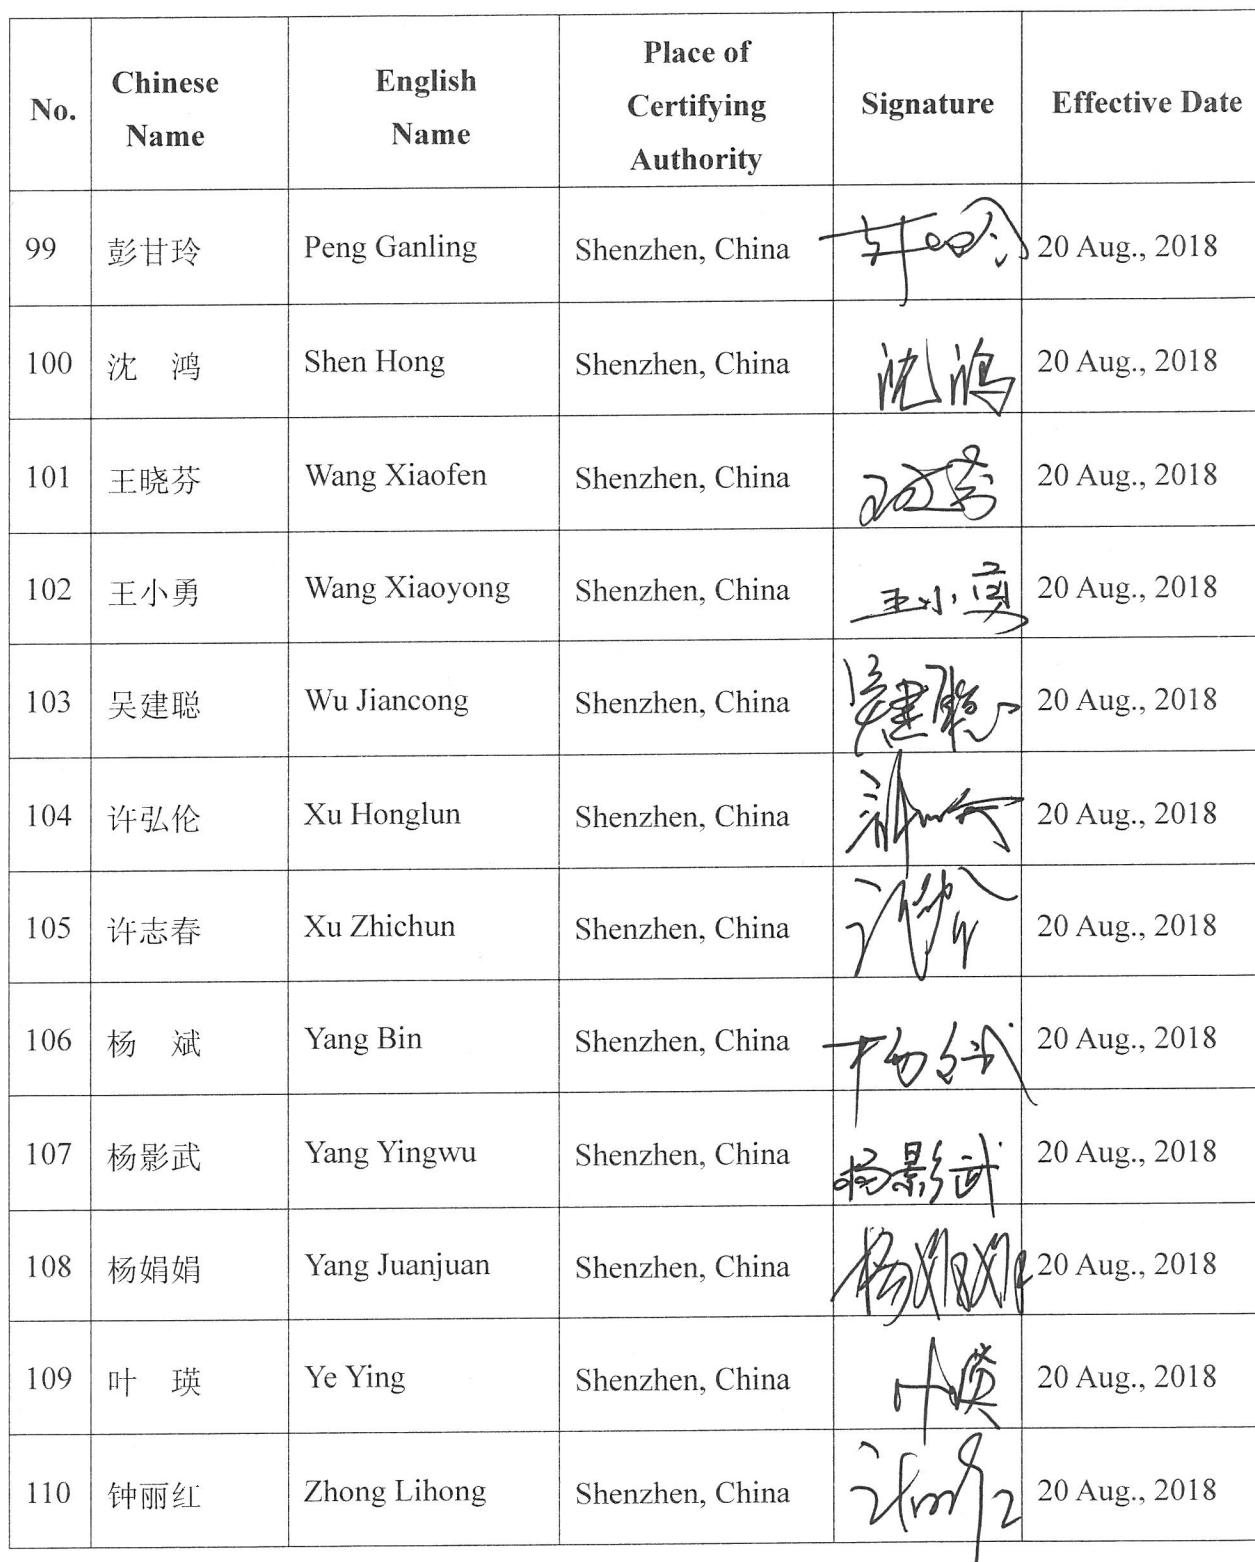 No. Chinese Name English Name Place of Certifying Authority Signature Effective Date
99 彭甘玲 Peng Ganling Shenzhen, China 20 Aug., 2018
100 沈 鸿 Shen Hong Shenzhen, China 沈鸿 20 Aug., 2018
101 王晓芬 Wang Xiaofen Shenzhen, China 20 Aug., 2018
102 王小勇 Wang Xiaoyong Shenzhen, China 王小勇 20 Aug., 2018
103 吴建聪 Wu Jiancong Shenzhen, China 吴建聪 20 Aug., 2018
104 许弘伦 Xu Honglun Shenzhen, China 20 Aug., 2018
105 许志春 Xu Zhichun Shenzhen, China 20 Aug., 2018
106 杨 斌 Yang Bin Shenzhen, China 杨斌 20 Aug., 2018
107 杨影武 Yang Yingwu Shenzhen, China 杨影武 20 Aug., 2018
108 杨娟娟 Yang Juanjuan Shenzhen, China 杨娟娟 20 Aug., 2018
109 叶 瑛 Ye Ying Shenzhen, China 叶瑛 20 Aug., 2018
110 钟丽红 Zhong Lihong Shenzhen, China 20 Aug., 2018